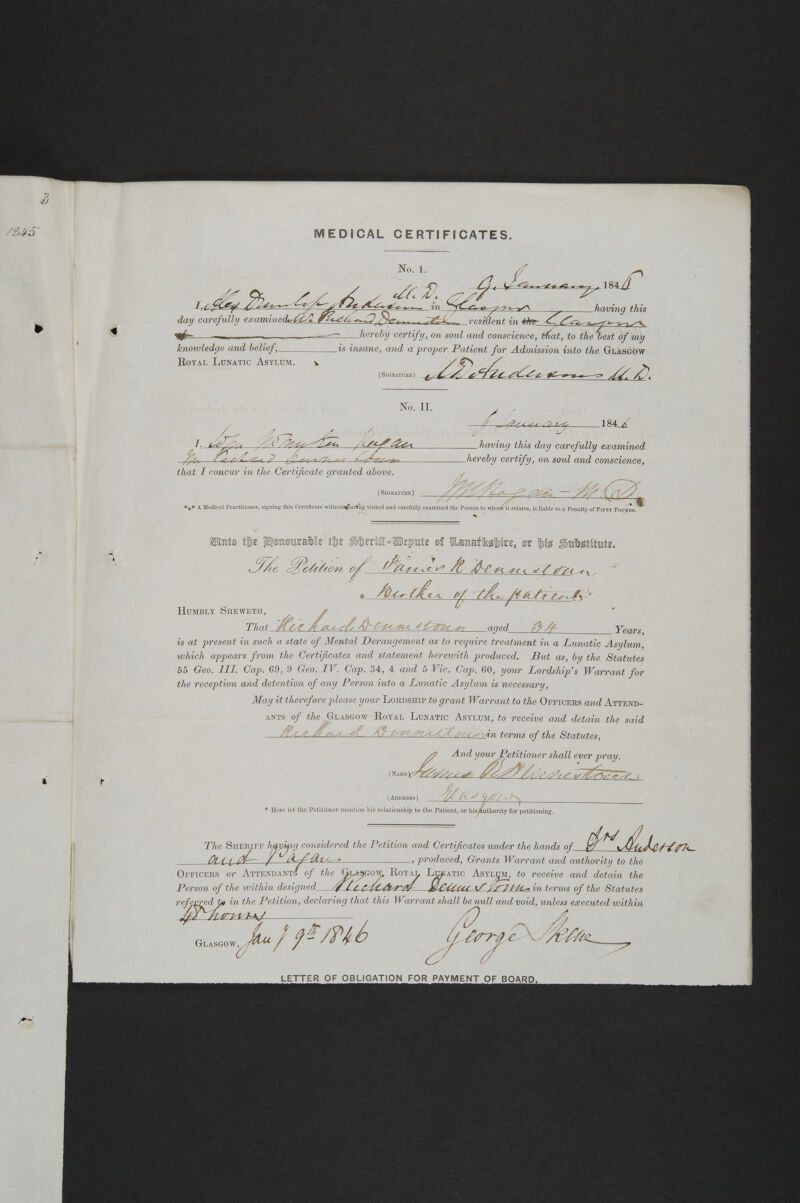 3
1845
MEDICAL CERTIFICATES.
No. 1.
9. January 1846
M.D.
I, Alex Dunlop Anderson in Glasgow having this
day carefully examined Mr. Richard Dennistoun resident in the Glasgow
of hereby certify, on soul and conscience, that, to the best of my
knowledge and belief, is insane, and a proper Patient for Admission into the GLASGOW
ROYAL LUNATIC ASYLUM.
(SIGNATURE) A D Anderson M.D.
No. II.
9 January 1846
I, John Pagan having this day carefully examined
Mr Richard Dennistoun hereby certify, on soul and conscience,
that I concur in the Certificate granted above.
(SIGNATURE) Pagan - M.D.
*** A Medical Practitioner, signing this Certificate without having visited and carefully examined the Person to whom it relates, is liable to a Penalty of FIFTY POUNDS.
Unto the Honourable the Sheriff-Depute of Lanarkshire, or his Substitute.
The Petition of James R Dennistoun
* Brother of the patient
HUMBLY SHEWETH,
That Richard Dennistoun aged 34 Years,
is at present in such a state of Mental Derangement as to require treatment in a Lunatic Asylum,
which appears from the Certificates and statement herewith produced. But as, by the Statutes
55 Geo. III. Cap. 69, 9 Geo. IV. Cap. 34, 4 and 5 Vic. Cap. 60, your Lordship's Warrant for
the reception and detention of any Person into a Lunatic Asylum is necessary,
May it therefore please your LORDSHIP to grant Warrant to the OFFICERS and ATTEND-
ANTS of the GLASGOW ROYAL LUNATIC ASYLUM, to receive and detain the said
Richard Dennistoun in terms of the Statutes,
And your Petitioner shall ever pray.
(NAME) James R Dennistoun
(ADDRESS) Glasgow
* Here let the Petitioner mention his relationship to the Patient, or his authority for petitioning.
The SHERIFF having considered the Petition and Certificates under the hands of Drs Anderson
and Pagan. , produced, Grants Warrant and authority to the
OFFICERS or ATTENDANTS of the GLASGOW ROYAL LUNATIC ASYLUM, to receive and detain the
Person of the within designed Richard Dennistoun in terms of the Statutes
referred to in the Petition, declaring that this Warrant shall be null and void, unless executed within
48 hours
GLASGOW, Jany 9th 1846 George Skene
LETTER OF OBLIGATION FOR PAYMENT OF BOARD.